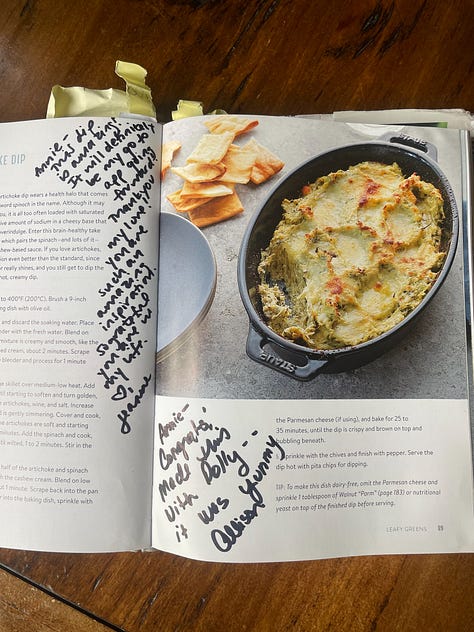 KE DIP
rtichoke dip wears a health halo that comes
word spinach in the name. Although it may
you, it is all too often loaded with saturated
sive amount of sodium in a cheesy base that
overindulge. Enter this brain-healthy take
which pairs the spinach—and lots of it—
ashew-based sauce. If you love artichokes,
ion even better than the standard, since
r really shines, and you still get to dip the
ot, creamy dip.
to 400°F (200°C). Brush a 9-inch
ng dish with olive oil.
and discard the soaking water. Place
nder with the fresh water. Blend on
mixture is creamy and smooth, like the
ed cream, about 2 minutes. Scrape
blender and process for 1 minute
e skillet over medium-low heat. Add
til starting to soften and turn golden,
tichokes, wine, and salt. Increase
l gently simmering. Cover and cook,
rtichokes are soft and starting
minutes. Add the spinach and cook,
til wilted, 1 to 2 minutes. Stir in the
half of the artichoke and spinach
h the cashew cream. Blend on low
out 1 minute. Scrape back into the pan
r into the baking dish, sprinkle with
Annie -
This dip
is amazing
It will definitely
be in my go to
all
Thank you
my love.
You are
such an
amazing
inspiration
so grateful
♡ Jeanne
STAUB
STAUB
Annie -
Congrats!
Made this
with Polly --
it was yummy
Allison
the Parmesan cheese (if using), and bake for 25 to
35 minutes, until the dip is crispy and brown on top and
bubbling beneath.
prinkle with the chives and finish with pepper. Serve the
dip hot with pita chips for dipping.
TIP: To make this dish dairy-free, omit the Parmesan cheese and
sprinkle 1 tablespoon of Walnut "Parm" (page 183) or nutritional
yeast on top of the finished dip before serving.
LEAFY GREENS 89